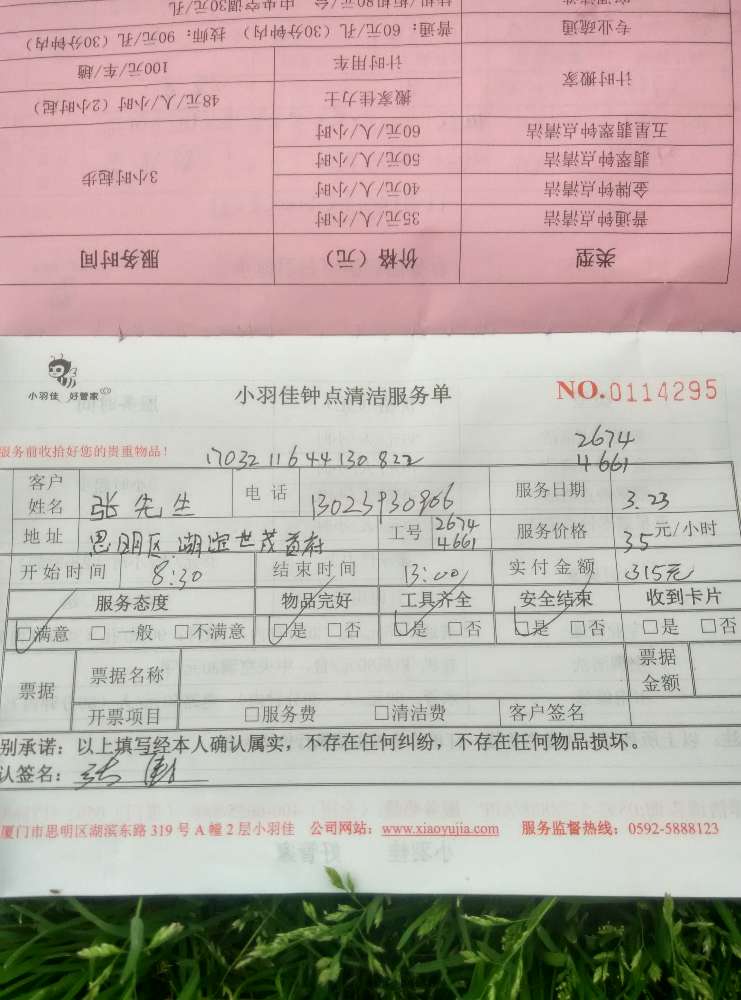 挂机/柜机80元/台 中央空调30元/孔
专业疏通 普通：60元/孔（30分钟内） 技师：90元/孔（30分钟内）
计时搬家 计时用车 100元/车/趟
搬家佳力士 48元/人/小时（2小时起）
五星翡翠钟点清洁 60元/人/小时
翡翠钟点清洁 50元/人/小时 3小时起步
金牌钟点清洁 40元/人/小时
普通钟点清洁 35元/人/小时
类型 价格（元） 服务时间
小羽佳 好管家
小羽佳钟点清洁服务单
NO.0114295
服务前收拾好您的贵重物品！
1703211644130822
2674
4661
客户姓名 张先生 电话 13023930906 服务日期 3.23
地址 思明区湖滨世茂首府 工号 2674 4661 服务价格 35元/小时
开始时间 8:30 结束时间 13:00 实付金额 315元
服务态度 物品完好 工具齐全 安全结束 收到卡片
□满意 □一般 □不满意 □是 □否 □是 □否 □是 □否 □是 □否
票据 票据名称 票据金额
开票项目 □服务费 □清洁费 客户签名
别承诺：以上填写经本人确认属实，不存在任何纠纷，不存在任何物品损坏。
认签名：
厦门市思明区湖滨东路319号A幢2层小羽佳 公司网站：www.xiaoyujia.com 服务监督热线：0592-5888123